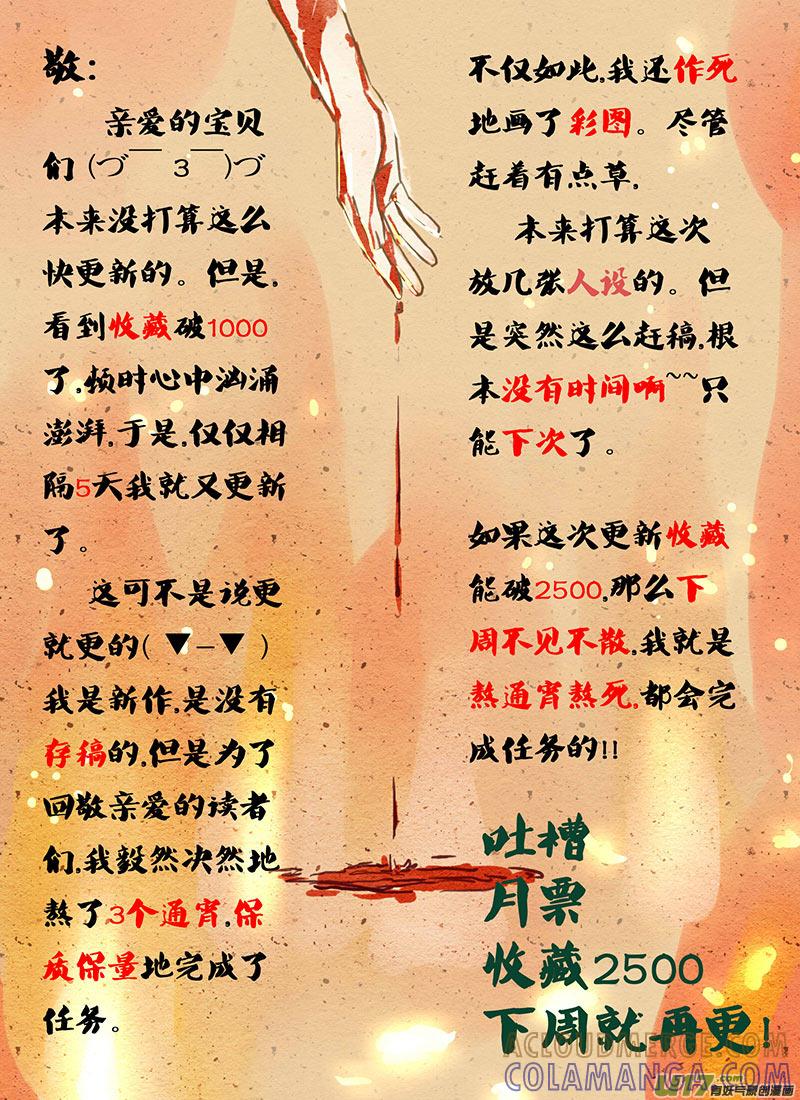 敬：
亲爱的宝贝
们（づ￣ 3￣)づ
本来没打算这么
快更新的。但是,
看到收藏破1000
了,顿时心中汹涌
澎湃,于是,仅仅相
隔5天我就又更新
了。
这可不是说更
就更的( ▼-▼ )
我是新作,是没有
存稿的,但是为了
回敬亲爱的读者
们,我毅然决然地
熬了3个通宵,保
质保量地完成了
任务。
不仅如此,我还作死
地画了彩图。尽管
赶着有点草,
本来打算这次
放几张人设的。但
是突然这么赶稿,根
本没有时间啊~~只
能下次了。
如果这次更新收藏
能破2500,那么下
周不见不散,我就是
熬通宵熬死,都会完
成任务的!!
吐槽
月票
收藏2500
下周就再更!
ACLOUDMERGE.COM
COLAMANGA.COM
U17.有妖气原创漫画